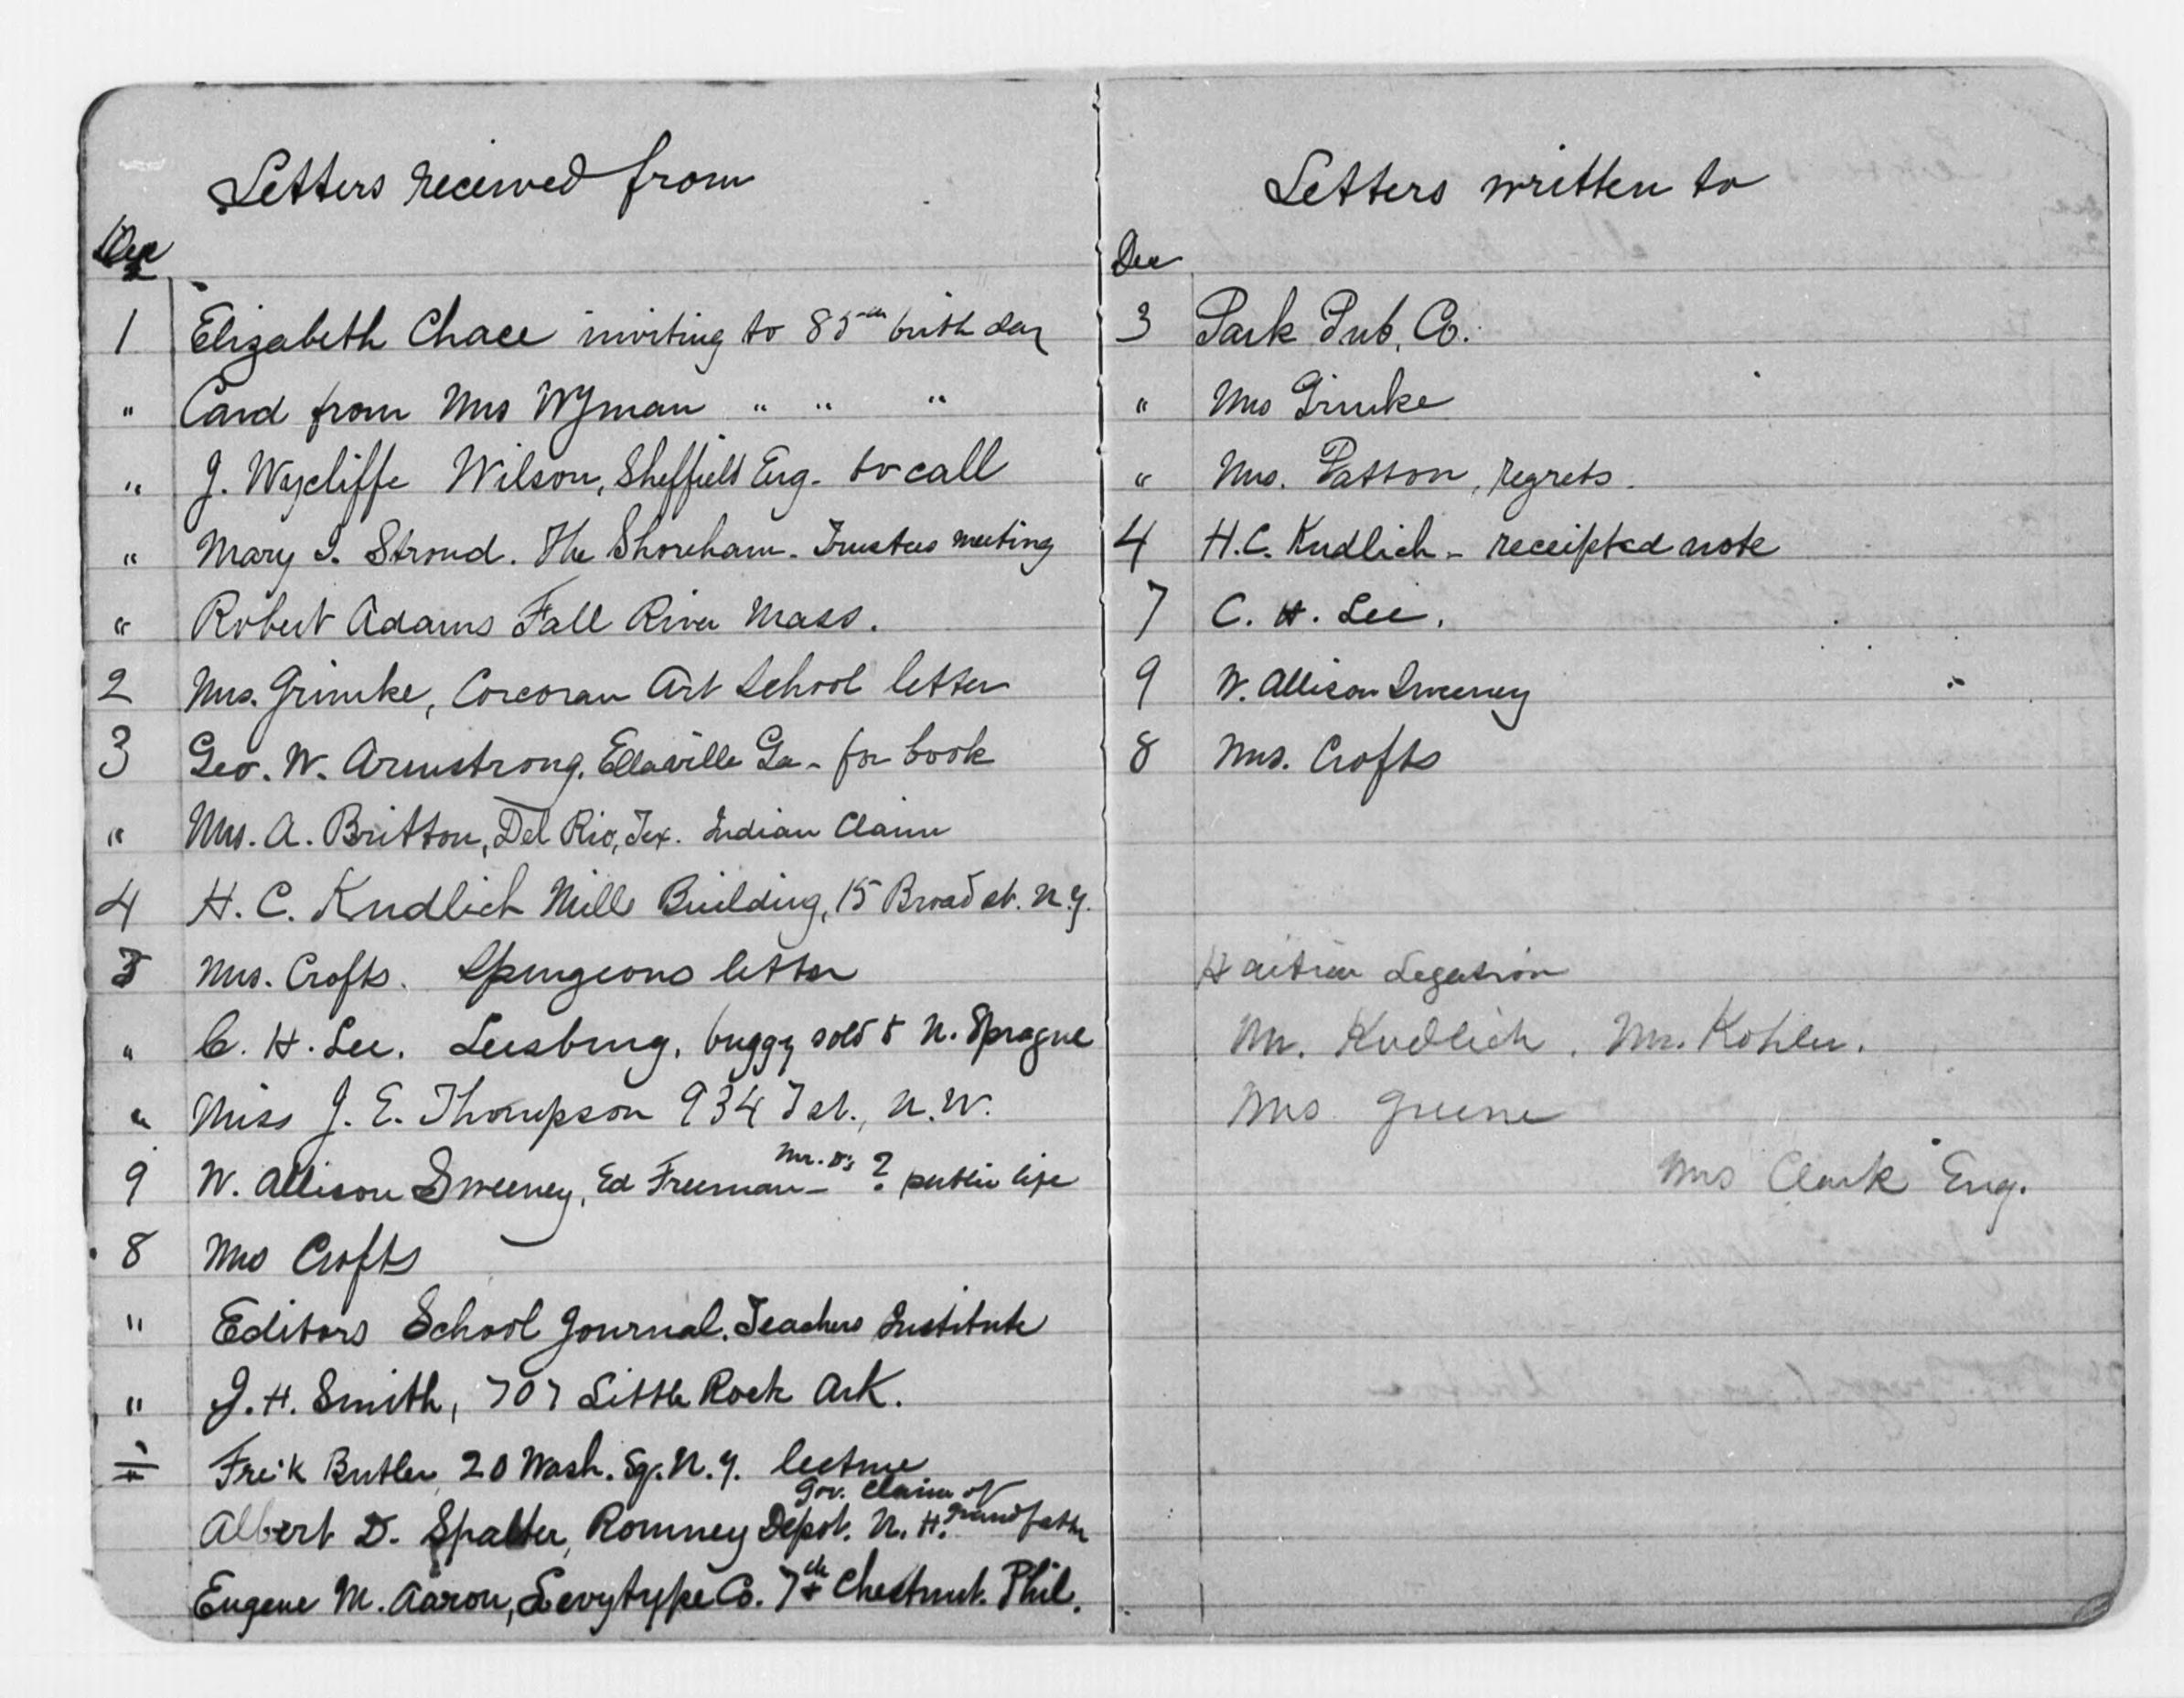 Letters received from
Dec
1 Elizabeth Chace inviting to 85th birth day
" Card from Mrs Wyman " " "
" J. Wycliffe Wilson, Sheffield Eng. to call
" Mary I. Stroud. The Shoreham. Trustees meeting
" Robert Adams Fall River Mass.
2 Mrs. Grimke, Corcoran Art School letter
3 Geo. W. Armstrong, Ellaville Ga - for book
" Mrs. A. Britton, Del Rio, Tex. Indian Claim
4 H. C. Kudlich Mills Building, 15 Broad st. N.Y.
5 Mrs. Crofts. Spurgeons letter
" C. H. Lee. Leesburg, buggy sold to N. Sprague
" Miss J. E. Thompson 934 T st., N.W.
9 W. Allison Sweeney, Ed Freeman - Mr. D's ? public life
8 Mrs Crofts
" Editors School Journal. Teachers Institute
" J. H. Smith, 707 Little Rock Ark.
" Fre'k Butler 20 Wash. Sq. N.Y. lecture
Gov. Claim of
Albert D. Spalter, Romney Depot. N. H. Grandfather
Eugene M. Aaron, Levytype Co. 7th + Chestnut. Phil.
Letters written to
Dec
3 Park Pub. Co.
" Mrs Grimke
" Mrs. Patton, regrets.
4 H.C. Kudlich - receipted note
7 C. H. Lee.
9 W. Allison Sweeney
8 Mrs. Crofts
Haitian Legation
Mr. Kudlich. Mr. Kohler.
Mrs Greene
Mrs Clark Eng.